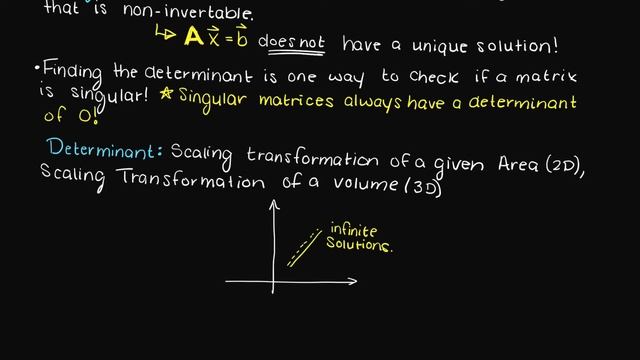 that is non-invertable.
↳ A x⃗ = b⃗ does not have a unique solution!
• Finding the determinant is one way to check if a matrix
is singular! ☆ Singular matrices always have a determinant
of 0!
Determinant: Scaling transformation of a given Area (2D),
Scaling Transformation of a volume (3D)
infinite
solutions.